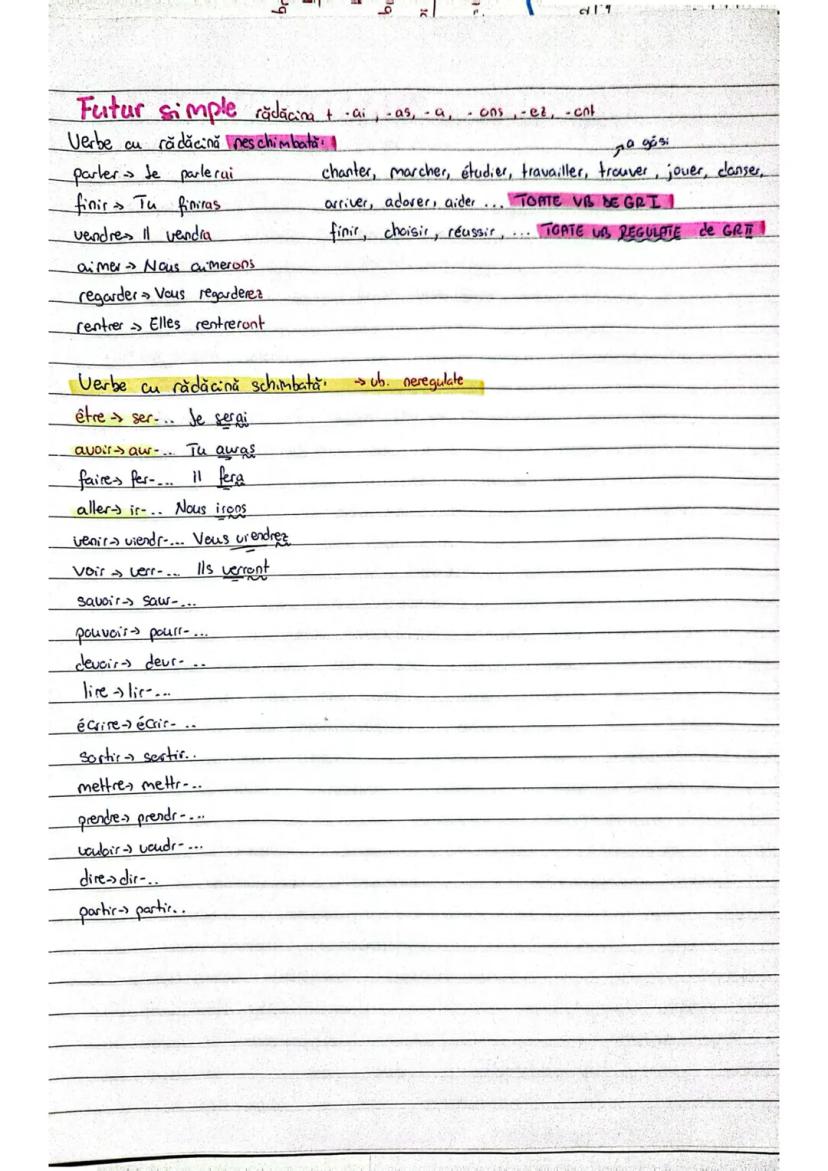 Futur simple rădăcina + -ai, -as, -a, -ons, -ez, -ont
Verbe cu rădăcină neschimbată:
→ a găsi
parler → Je parlerai chanter, marcher, étudier, travailler, trouver, jouer, danser,
finir → Tu finiras arriver, adorer, aider ... TOATE VB DE GR I
vendre → Il vendra finir, choisir, réussir, ... TOATE VB REGULATE de GR II
aimer → Nous aimerons
regarder → Vous regarderez
rentrer → Elles rentreront
Verbe cu rădăcină schimbată: → vb. neregulate
être → ser-... Je serai
avoir → aur-... Tu auras
faire → fer-... Il fera
aller → ir-... Nous irons
venir → viendr-... Vous viendrez
voir → verr-... Ils verront
savoir → saur-...
pouvoir → pourr-...
devoir → devr-...
lire → lir-...
écrire → écrir-...
sortir → sortir..
mettre → mettr-...
prendre → prendr-...
vouloir → voudr-...
dire → dir-..
partir → partir..